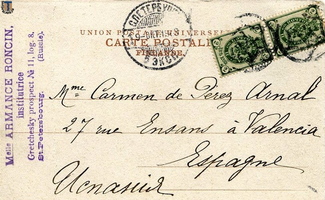 UNION POSTALE UNIVERSELLE
CARTE POSTALE
FINLANDE
Melle ARMANCE RONCIN,
institutrice
Gretchesky prospect № 11, log. 8.
St. Petersbourg. (Russie).
Mme Carmen de Perez Arnal
27 rue Ensans à Valencia
Espagne
Испания